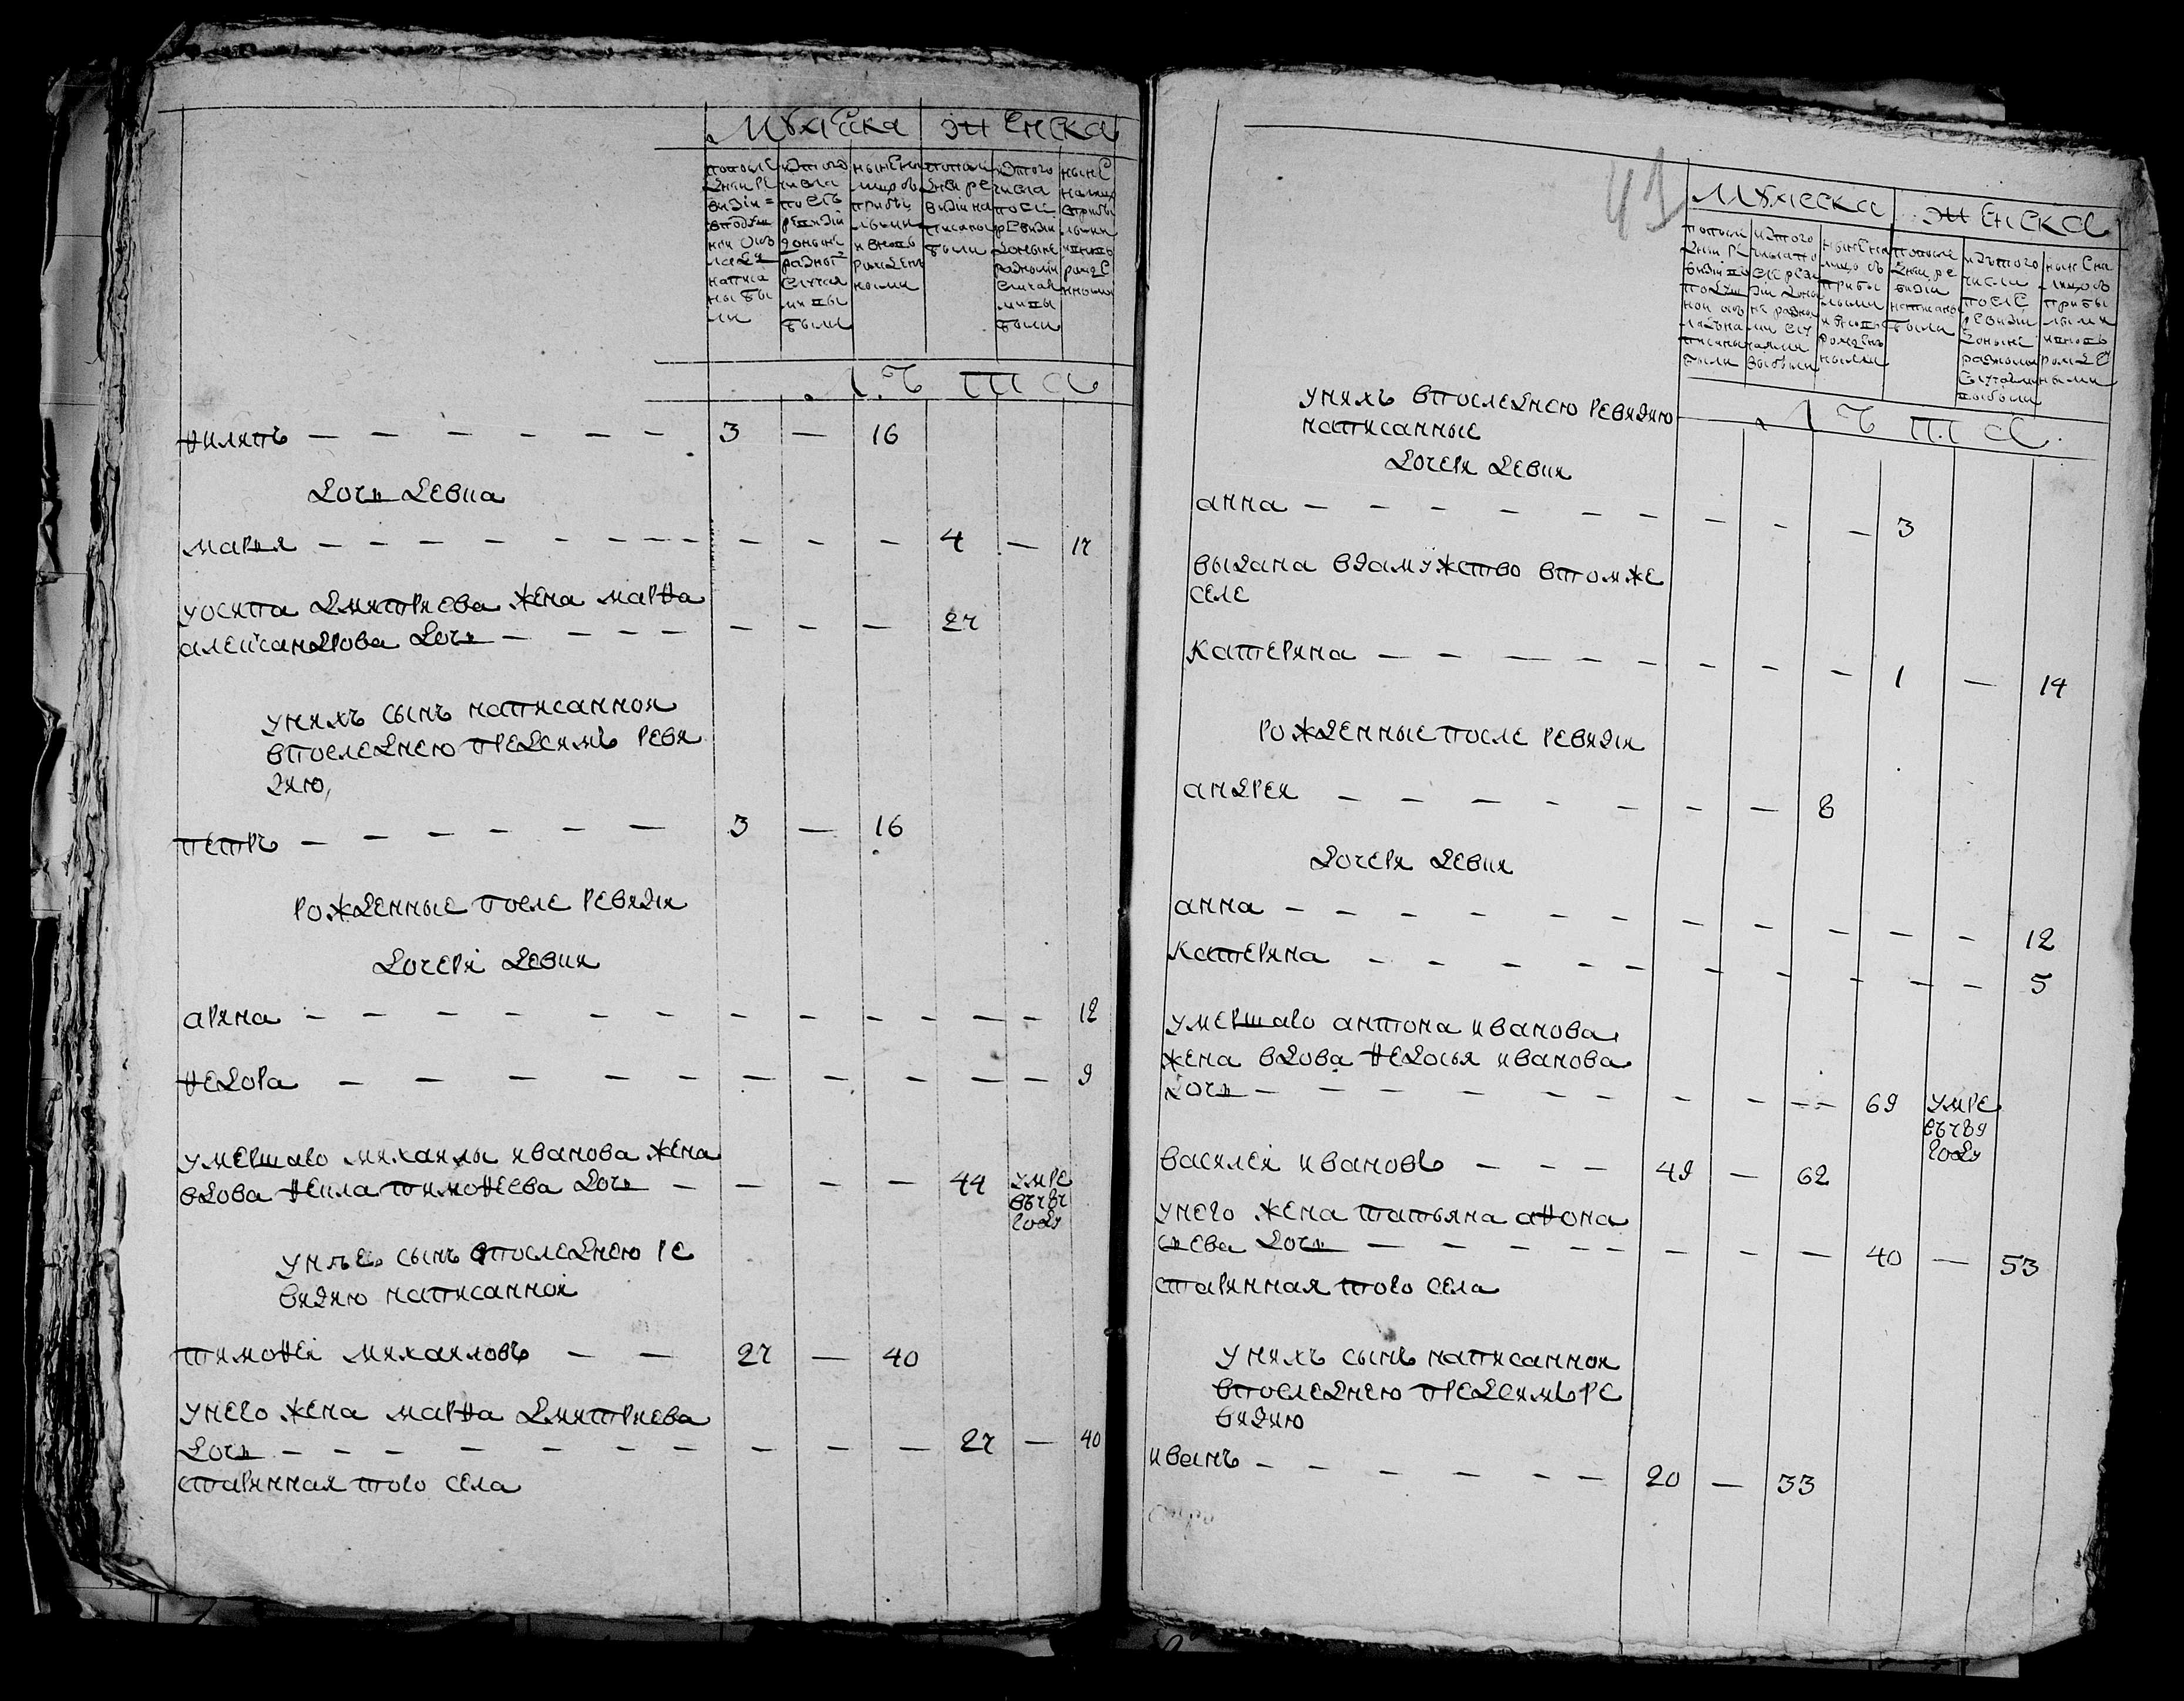 Мужеска Женска
по последней ревизии в подушной оклад написаны были
из того числа после ревизии доныне разными случаи выбыли
ныне на лицо с прибылыми и вновь рожденными
по последней ревизии написаны были
из того числа после ревизии доныне разными случаи выбыли
ныне на лицо с прибылыми и вновь рожденными
Лѣта
Филипъ — 3 — 16
дочь девка
Марья — 4 — 17
у Осипа Дмитриева жена Марфа
Александрова дочь — 27
у них сынъ написанной
в последнею пред симъ реви
зию
Петръ — 3 — 16
рожденные после ревизии
дочери девки
Арина — 12
Федора — 9
умершаго Михаилы Иванова жена
вдова Фекла Тимофеева дочь — 44 умре
году
у нѣе сынъ в последнею ре
визию написанной
Тимофей Михаиловъ — 27 — 40
у него жена Марфа Дмитриева
дочь — 27 — 40
старинная того села
41
Мужеска Женска
по последней ревизии в подушной оклад написаны были
из того числа после ревизии доныне разными случаями выбыли
ныне на лицо с прибылыми и вновь рожденными
по последней ревизии написаны были
из того числа после ревизии доныне разными случаями выбыли
ныне на лицо с прибылыми и вновь рожденными
Лѣта
у нихъ в последнею ревизию
написанные
дочери девки
Анна — 3
выдана в замужство в том же
селе
Катерина — 1 — 14
рожденные после ревизии
Андреи — 8
дочери девки
Анна — 12
Катерина — 5
умершаго Антона Иванова
жена вдова Федосья Иванова
дочь — 69 умре
году
Василеи Ивановъ — 49 — 62
у него жена Татьяна Афона
сьева дочь — 40 — 53
старинная того села
у нихъ сынъ написанной
в последнею пред симъ ре
визию
Иванъ — 20 — 33